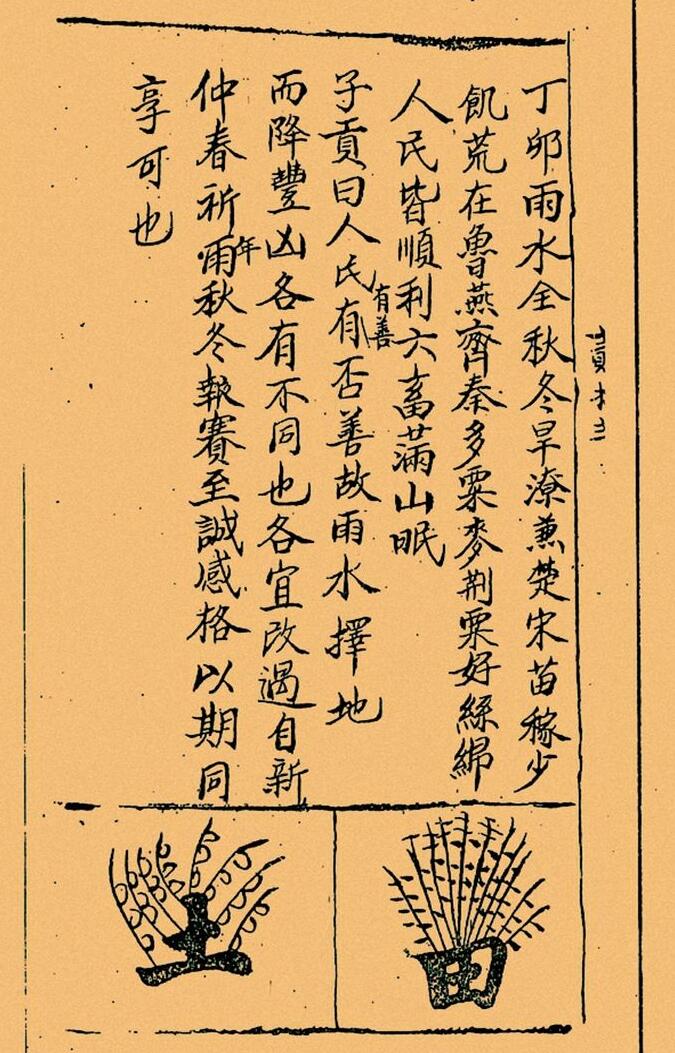 丁卯雨水全秋冬旱潦兼楚宋苗稼少
飢荒在魯燕齊秦多粟麥荆粟好絲綿
人民皆順利六畜滿山眠
子貢曰人民有有善否善故雨水擇地
而降豐凶各有不同也各宜改過自新
仲春祈雨年秋冬報賽至誠感格以期同
享可也
田
土